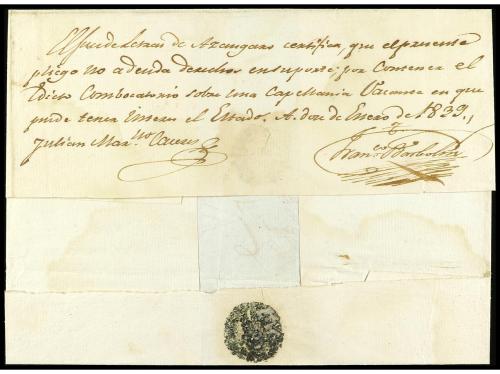 El juez de Letras de Azangaro certifica, que el presente
pliego no adeuda derechos en su porte, por Contener el
Edicto Combocatorio sobre una Capellania Vacante en que
puede tener interes el Estado. A dos de Enero de 1839,,
Julian Mar.no
Fran.co